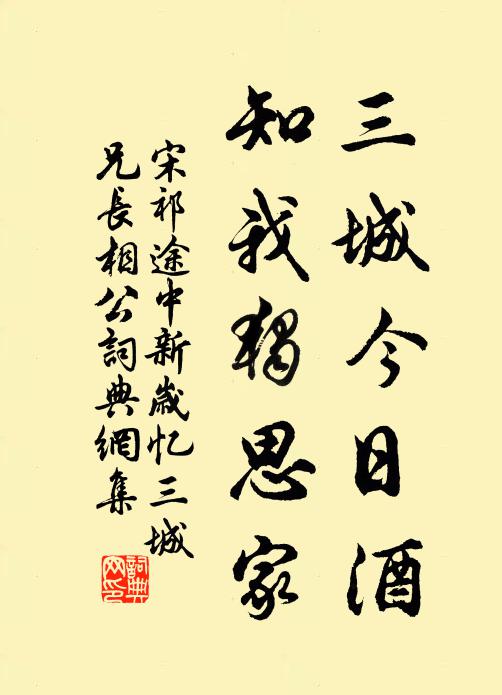 三城今日酒
知我独思家
宋祁途中新歲忆三城
兄長相公詞典網集
詞典网印